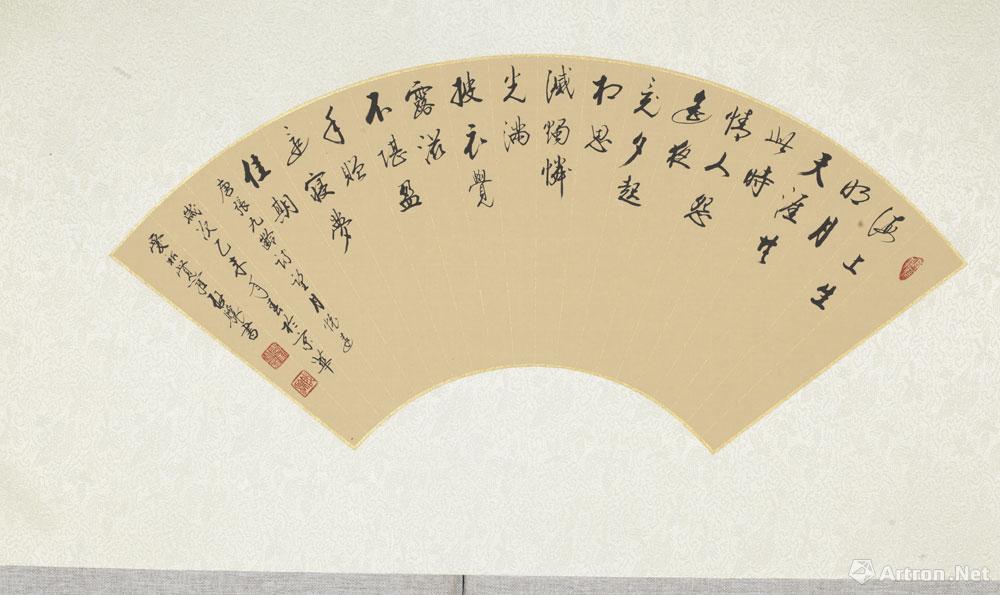 海上生
明月
天涯共
此時
情人怨
遙夜
竟夕起
相思
滅燭憐
光滿
披衣覺
露滋
不堪盈
手贈
還寢夢
佳期
唐張九齡詩望月懷遠
歲次乙未於京華
書
Artron.Net